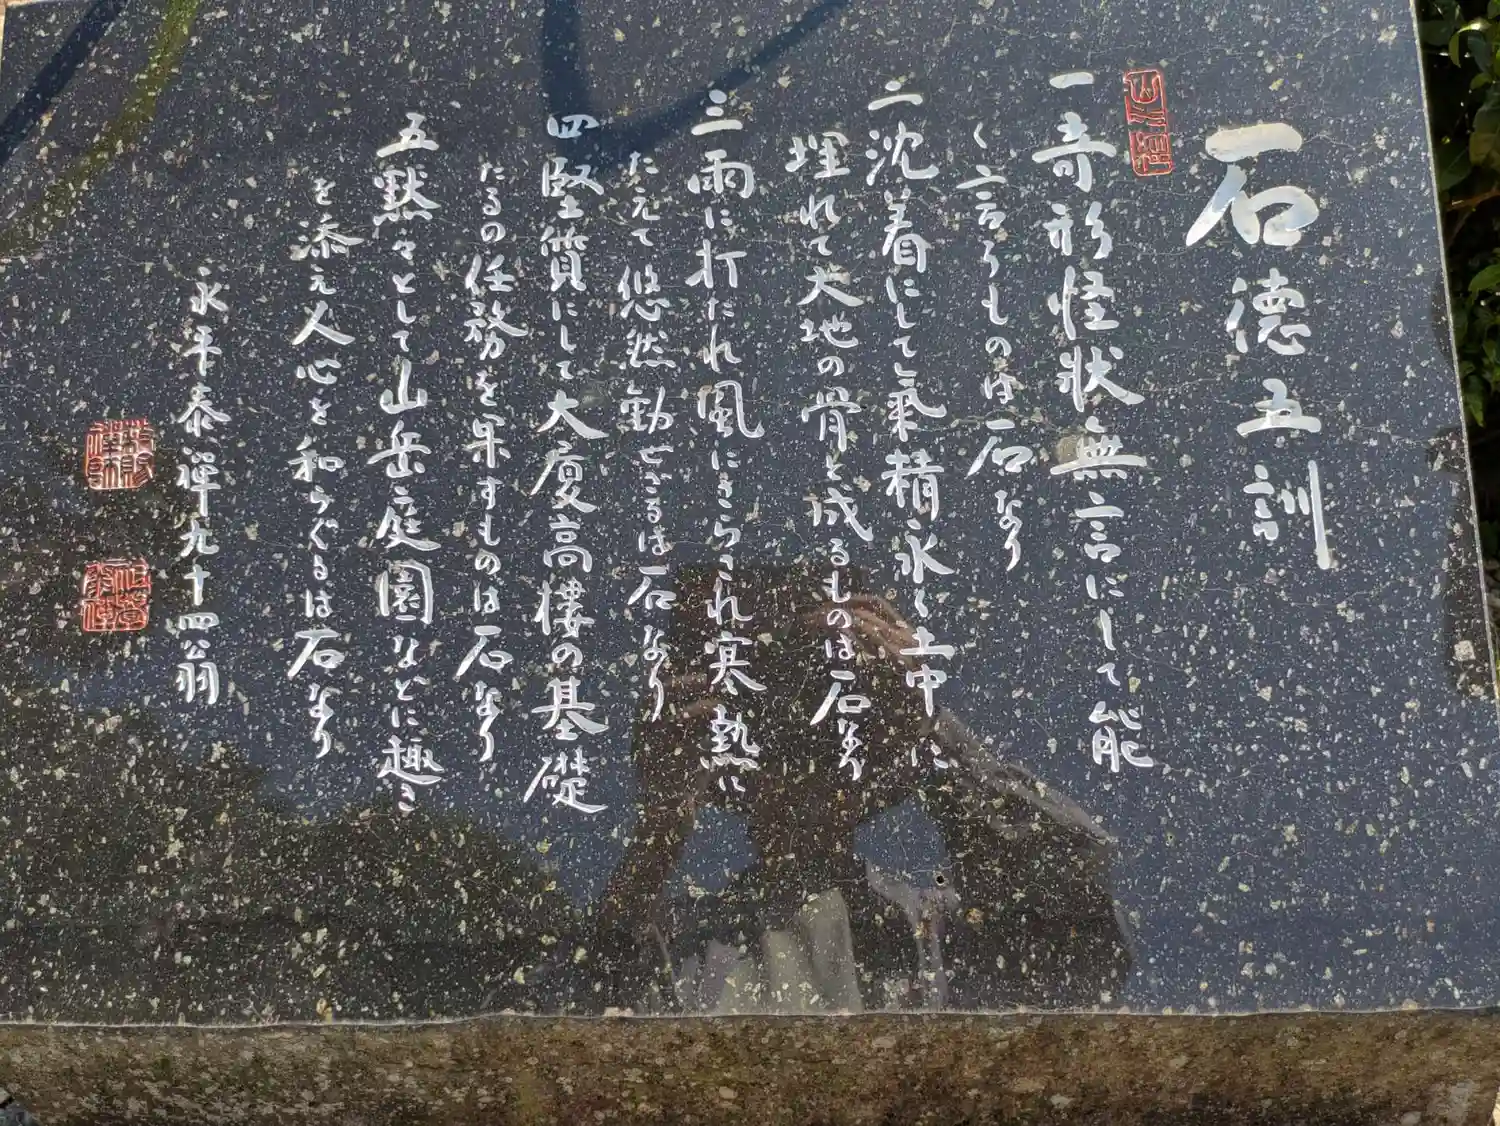 石德五訓
一奇形怪状無言にして能
く言うものは石なり
二沈着にして氣精永く土中に
埋れて大地の骨と成るものは石なり
三雨に打たれ風にさらされ寒熱に
たえて悠然動せざるは石なり
四堅質にして大廈高樓の基礎
たるの任務を果すものは石なり
五黙々として山岳庭園などに趣き
を添え人心を和らぐるは石なり
永平泰禅九十四翁